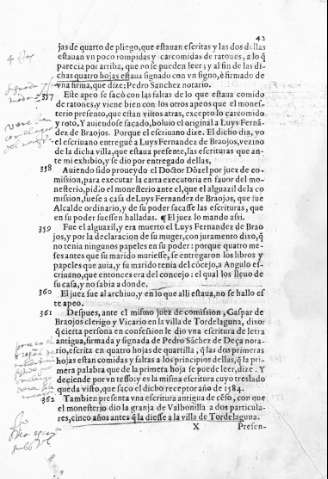 42
jas de quarto de pliego, que estauan escritas y las dos dellas
estauan vn poco rompidas y carcomidas de ratones, a lo q̃
parecia por arriba, que no se pueden leer; y al fin de las di-
chas quatro hojas estaua signado con vn signo, è firmado de
vna firma, que dize: Pedro Sanchez notario.
357 Este apeo se sacó con las faltas de lo que estaua comido
de ratones, y viene bien con los otros apeos que el mones-
terio presento, que estan vistos atras, excepto lo carcomido
y roto, Y auiendose sacado, boluio el original a Luys Fernã-
dez de Braojos. Porque el escriuano dize. El dicho dia, yo
el escriuano entregué a Luys Fernandez de Braojos, vezino
de la dicha villa, que estaua presente, las escrituras que an-
te mi exhibio, y se dio por entregado dellas,
358 Auiendo sido proueydo el Doctor Dòzel por juez de co-
mission, para executar la carta executoria en fauor del mo-
nesterio, pidio el monesterio ante el, que el alguazil de la co
mission, fuesse a casa de Luys Fernandez de Braojos, que fue
Alcalde ordinario, y de su poder sacasse las escrituras, que
en su poder fuessen halladas. ¶ El juez lo mando assi.
359 Fue el alguazil, y era muerto el Luys Fernandez de Brao
jos, y por la declaracion de su muger, con juramento dixo, q̃
no tenia ningunos papeles en su poder: porque quatro me-
ses antes que su marido muriesse, se entregaron los libros y
papeles que auia, y su marido tenia del cõcejo, a Angulo es-
criuano, que entonces era del concejo: el qual los lleuo de
su casa, y no sabia a donde.
360 El juez fue al archiuo, y en lo que alli estaua, no se hallo es
te apeo.
361 Despues, ante el mismo juez de comission, Gaspar de
Braojos clerigo y Vicario en la villa de Tordelaguna, dixo:
q̃ cierta persona en confession le dio vna escritura de letra
antigua, firmada y signada de Pedro Sãchez de Deça nota-
rio, escrita en quatro hojas de quartilla, q̃ las dos primeras
hojas estan comidas y faltas a los principios dellas, q̃ la pri
mera palabra que de la primera hoja se puede leer, dize. Y
deciende por vn tesso: y es la misma escritura cuyo treslado
queda visto, que saco el dicho receptor año de 1584.
362 Tambien presenta vna escritura antigua de céso, con que
el monesterio dio la granja de Valbonilla a dos particula-
res, cinco años antes q̃ la diesse a la villa de Tordelaguna.
X Presen-